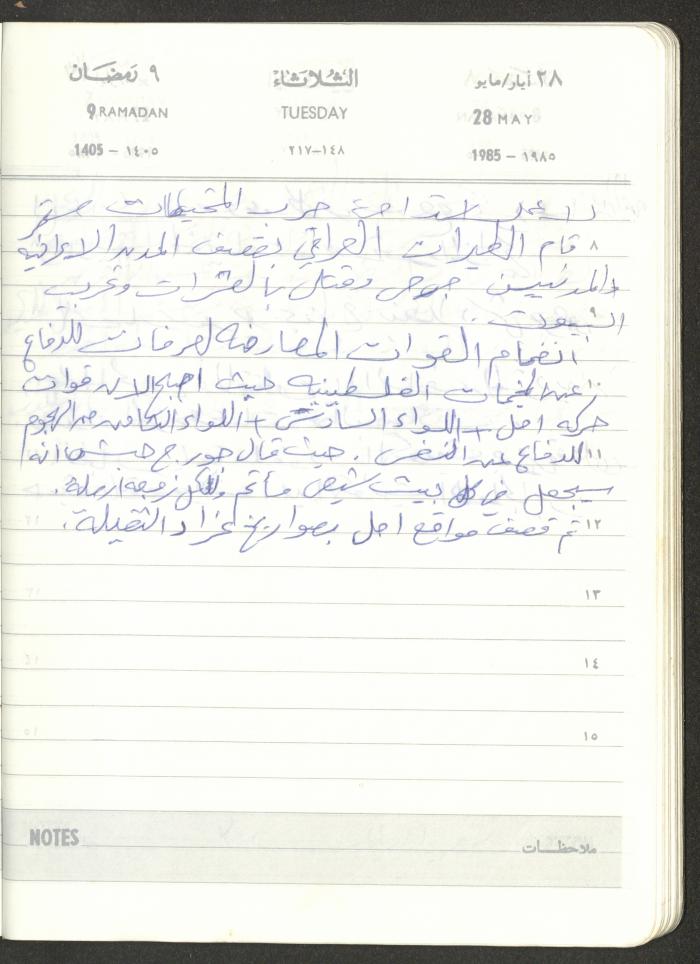 ٢٨ أيار/مايو الثلاثاء ٩ رمضان
28 MAY TUESDAY 9 RAMADAN
1985 – ١٩٨٥ ٢١٧–١٤٨ 1405 – ١٤٠٥
لا عمل استراحة حرب المخيمات
٨ قام الطيران العراقي بقصف المدن الايرانية
والمدنيين جرحى وقتلى بالعشرات وتخريب
٩ البيوت .
انضمام القوات المعارضه لعرفات للدفاع
١٠ عن المخيمات الفلسطينيه حيث اصبح الان قوات
حركه امل + اللواء السادس + اللواء الثامن الهجوم
١١ للدفاع عن النفس . حيث قال جورج حبش انه
سيجعل في كل بيت شيعي مأتم ولكل زوجة ارملة .
١٢ تم قصف مواقع امل بصواريخ غراد الثقيلة .
١٣
١٤
١٥
NOTES ملاحظات